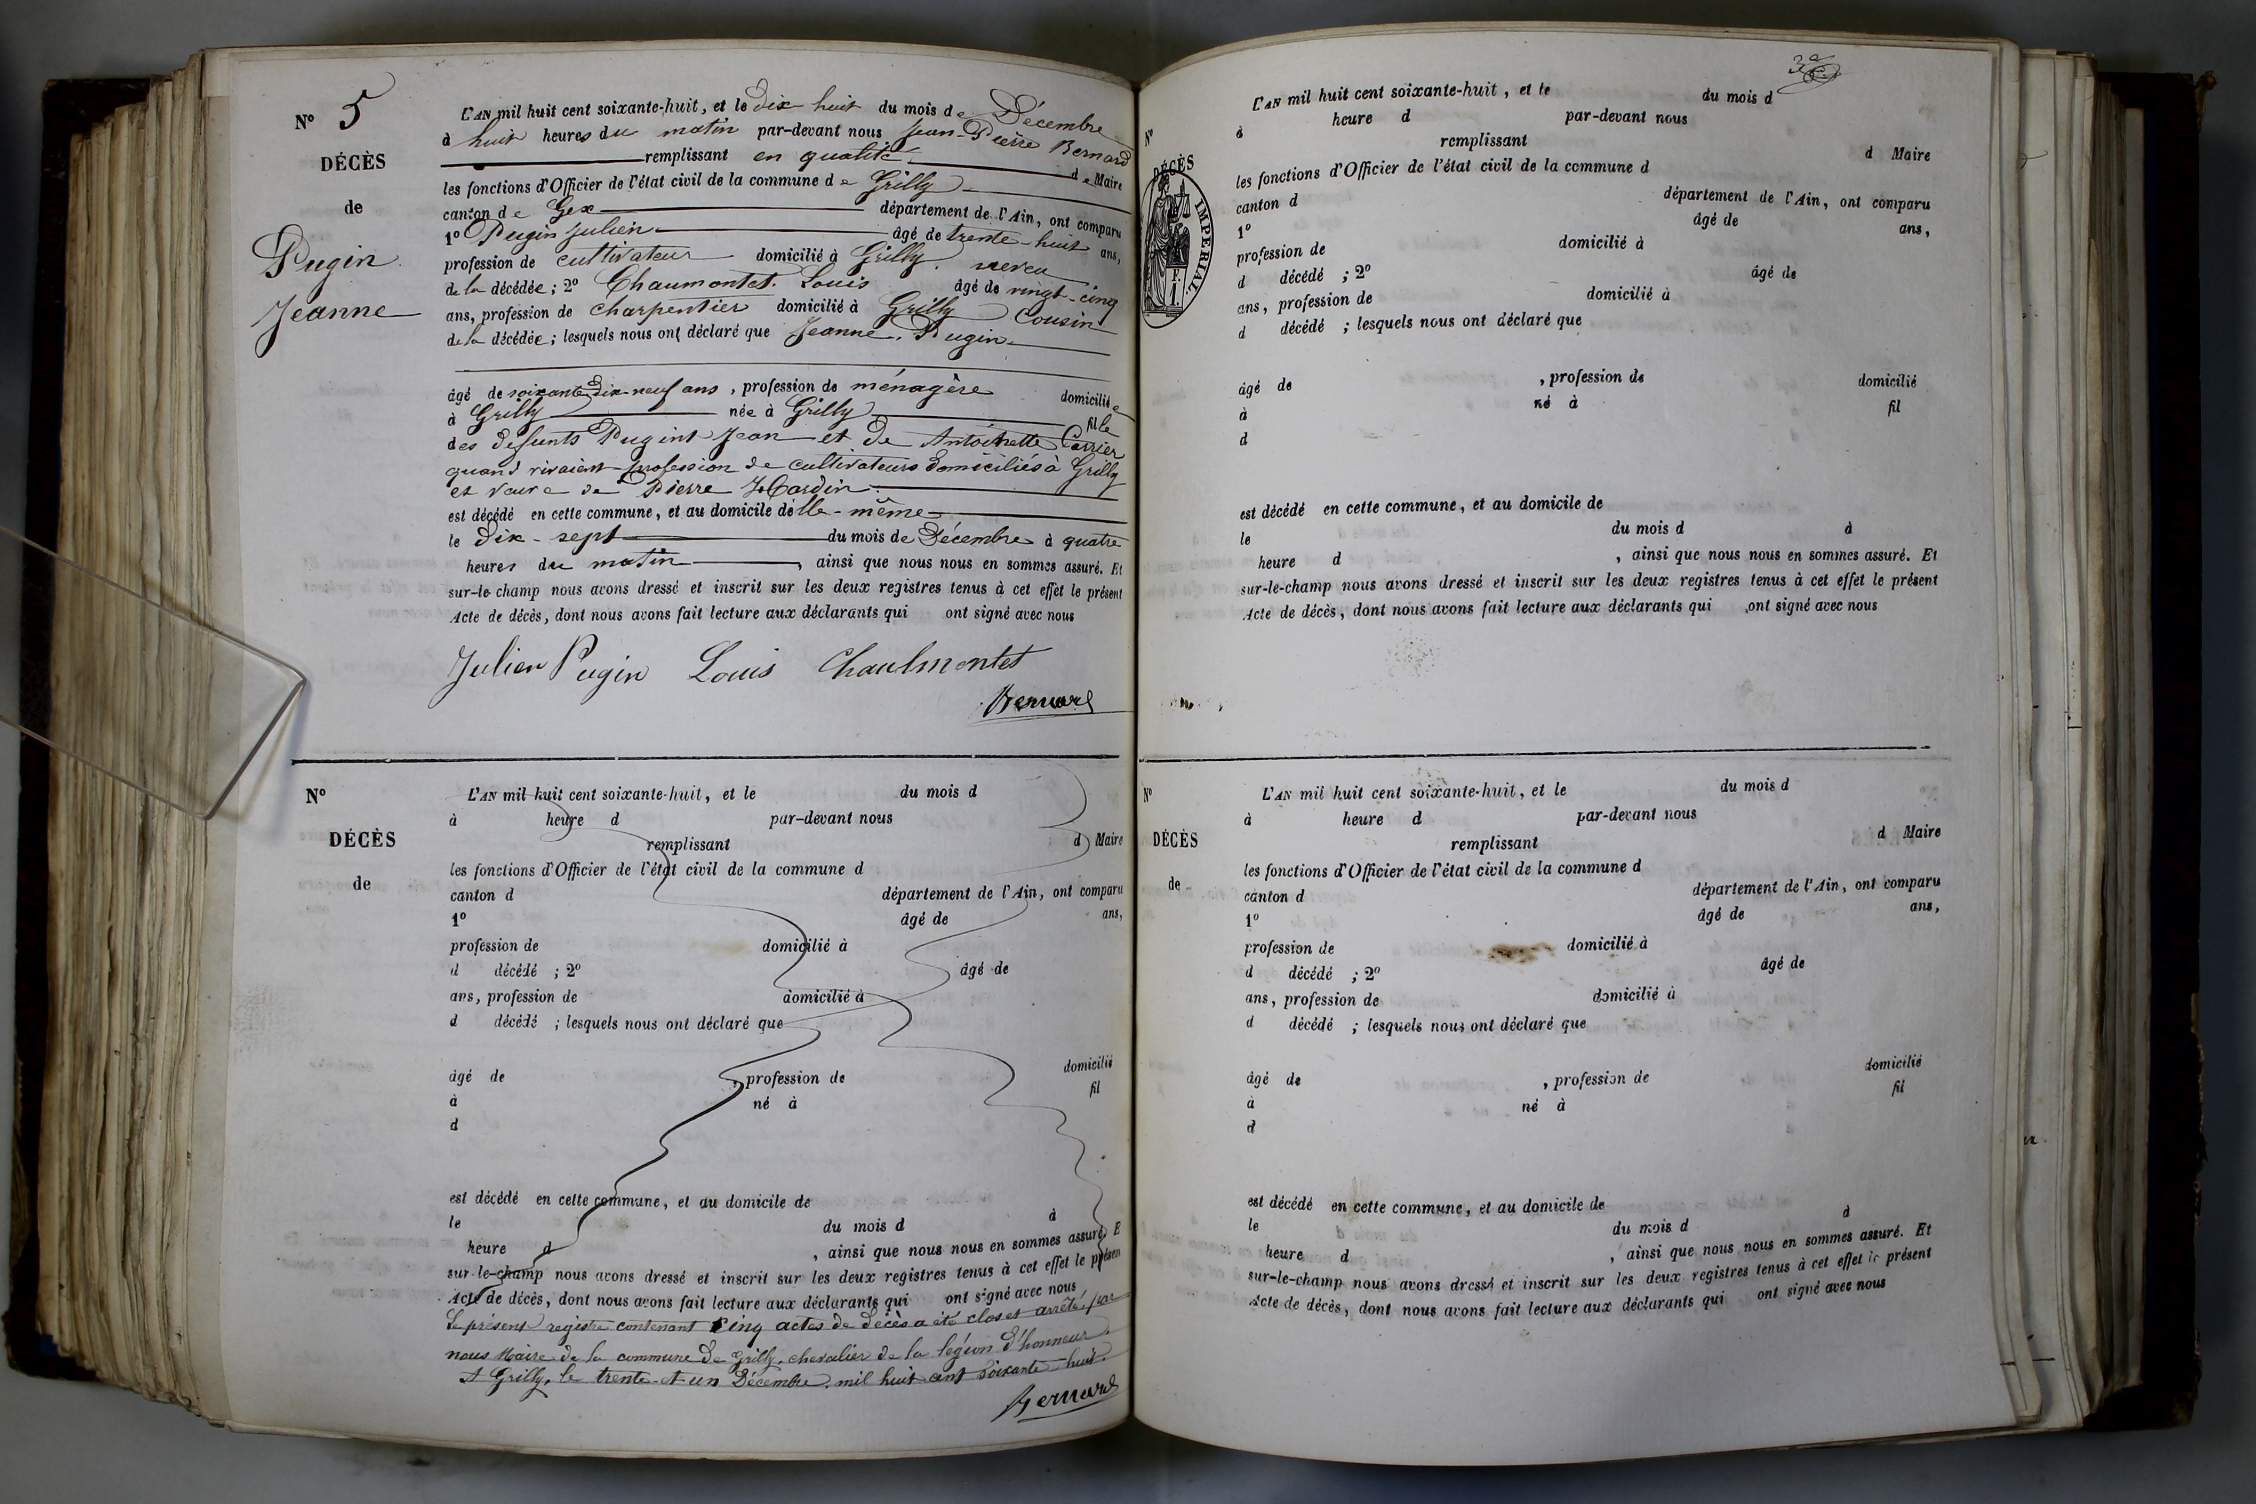 N° 5
DÉCÈS
de
Pugin
Jeanne
L'AN mil huit cent soixante-huit, et le dix huit du mois de Décembre
à huit heures du matin par-devant nous Jean-Pierre Bernard
remplissant en qualité de Maire
les fonctions d'Officier de l'état civil de la commune de Grilly
canton de Gex département de l'Ain, ont comparu
1° Pugin Julien âgé de trente-huit ans,
profession de cultivateur domicilié à Grilly, neveu
de la décédée; 2° Chaumontet Louis âgé de vingt-cinq
ans, profession de charpentier domicilié à Grilly Cousin
de la décédée; lesquels nous ont déclaré que Jeanne Pugin
âgé de soixante dix-neuf ans, profession de ménagère domiciliée
à Grilly née à Grilly fille
des défunts Pugin Jean et de Antoinette Carrier
quand vivaient profession de cultivateurs domiciliés à Grilly
et veuve de Pierre
est décédé en cette commune, et au domicile d'elle-même
le dix-sept du mois de Décembre à quatre
heures du matin, ainsi que nous nous en sommes assuré. Et
sur-le-champ nous avons dressé et inscrit sur les deux registres tenus à cet effet le présent
Acte de décès, dont nous avons fait lecture aux déclarants qui ont signé avec nous
Julien Pugin Louis Chaulmontet
Bernard
N°
DÉCÈS
de
L'AN mil huit cent soixante-huit, et le du mois d
à heure d par-devant nous
remplissant d Maire
les fonctions d'Officier de l'état civil de la commune d
canton d département de l'Ain, ont comparu
1° âgé de ans,
profession de domicilié à
d décédé ; 2° âgé de
ans, profession de domicilié à
d décédé ; lesquels nous ont déclaré que
âgé de , profession de domicilié
à né à fil
d
est décédé en cette commune, et au domicile de
le du mois d à
heure d , ainsi que nous nous en sommes assuré. E
sur-le-champ nous avons dressé et inscrit sur les deux registres tenus à cet effet le présen
Acte de décès, dont nous avons fait lecture aux déclarants qui ont signé avec nous
Le présent registre contenant cinq actes de décès a été clos et arrêté par
nous Maire de la commune de Grilly, chevalier de la légion d'honneur
A Grilly, le trente et un Décembre mil huit cent soixante-huit.
Bernard
3e
N°
DÉCÈS
IMPERIAL.
F.
1.
L'AN mil huit cent soixante-huit, et le du mois d
à heure d par-devant nous
remplissant d Maire
les fonctions d'Officier de l'état civil de la commune d
canton d département de l'Ain, ont comparu
1° âgé de ans,
profession de domicilié à
d décédé ; 2° âgé de
ans, profession de domicilié à
d décédé ; lesquels nous ont déclaré que
âgé de , profession de domicilié
à né à fil
d
est décédé en cette commune, et au domicile de
le du mois d à
heure d , ainsi que nous nous en sommes assuré. Et
sur-le-champ nous avons dressé et inscrit sur les deux registres tenus à cet effet le présent
Acte de décès, dont nous avons fait lecture aux déclarants qui ont signé avec nous
N°
DÉCÈS
de
L'AN mil huit cent soixante-huit, et le du mois d
à heure d par-devant nous
remplissant d Maire
les fonctions d'Officier de l'état civil de la commune d
canton d département de l'Ain, ont comparu
1° âgé de ans,
profession de domicilié à
d décédé ; 2° âgé de
ans, profession de domicilié à
d décédé ; lesquels nous ont déclaré que
âgé de , profession de domicilié
à né à fil
d
est décédé en cette commune, et au domicile de
le du mois d à
heure d , ainsi que nous nous en sommes assuré. Et
sur-le-champ nous avons dressé et inscrit sur les deux registres tenus à cet effet le présent
Acte de décès, dont nous avons fait lecture aux déclarants qui ont signé avec nous